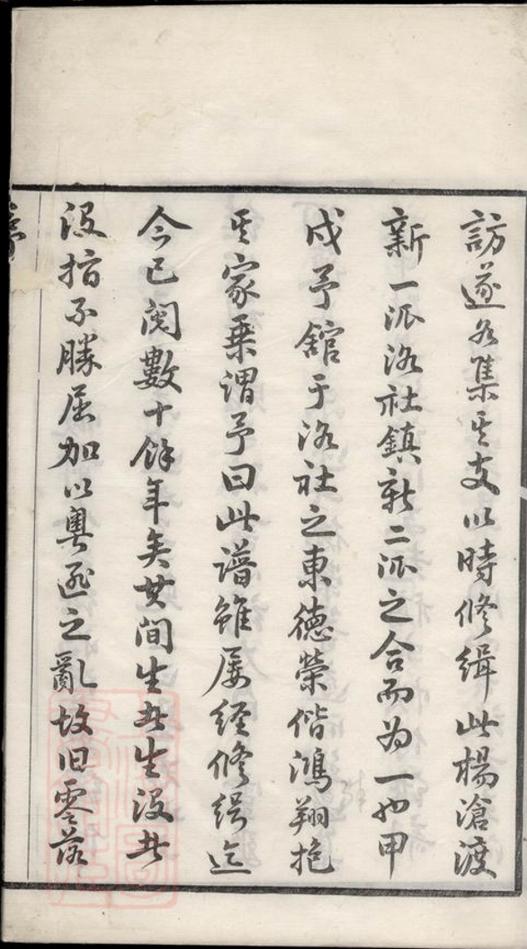 訪遂各集其支以時修緝此楊滄渡
新一派洛社鎮新二派之合而為一也甲
戌予館于洛社之東德榮偕鴻翔抱
其家乗謂予曰此譜雖屡經修緝迄
今已閱數十餘年矣其間生者生沒者
沒指不勝屈加以粤逆之亂故旧零落